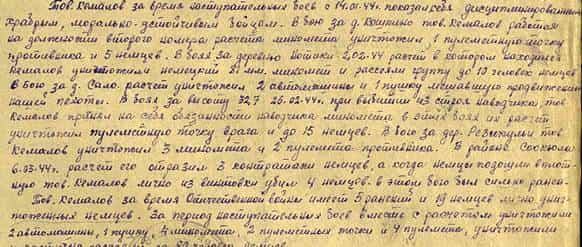 Тов. Кемалов за время наступательных боев с 14.01.44г. показал себя дисциплинированным
храбрым, морально-устойчивым бойцом. В бою за д. тов. Кемалов работая
на должности второго номера расчета миномета уничтожил 1 пулеметную точку
противника и 5 немцев. В боях за деревню 2.02.44 расчет в котором находился
Кемалов уничтожил немецкий 81 мм. миномет и рассеял группу до 10 человек немцев
В бою за д. Сало. расчет уничтожил 2 автомашины и 1 пушку мешавшую продвижению
нашей пехоты. В боях за высоту 32,7 26.02.44г. при выбытии из строя наводчика, тов
Кемалов принял на себя обязанности наводчика миномета в этих боях их расчет
уничтожил пулеметную точку врага и до 15 немцев. В бою за дер. тов
Кемалов уничтожил 3 миномета и 2 пулемета противника. В районе
6.03.44г. расчет его отразил 3 контратаки немцев, а когда немцы подошли вплот
ную тов. Кемалов лично из винтовки убил 4 немцев. в этом бою был сильно ранен.
Тов. Кемалов за время Отечественной войны имеет 5 ранений и 19 немцев лично унич-
тоженных немцев. За период наступательных боев вместе с расчетом уничтожили
2 автомашины, 1 пушку, 4 миномета, 2 пулеметных точки и 4 пулемета, уничтожили